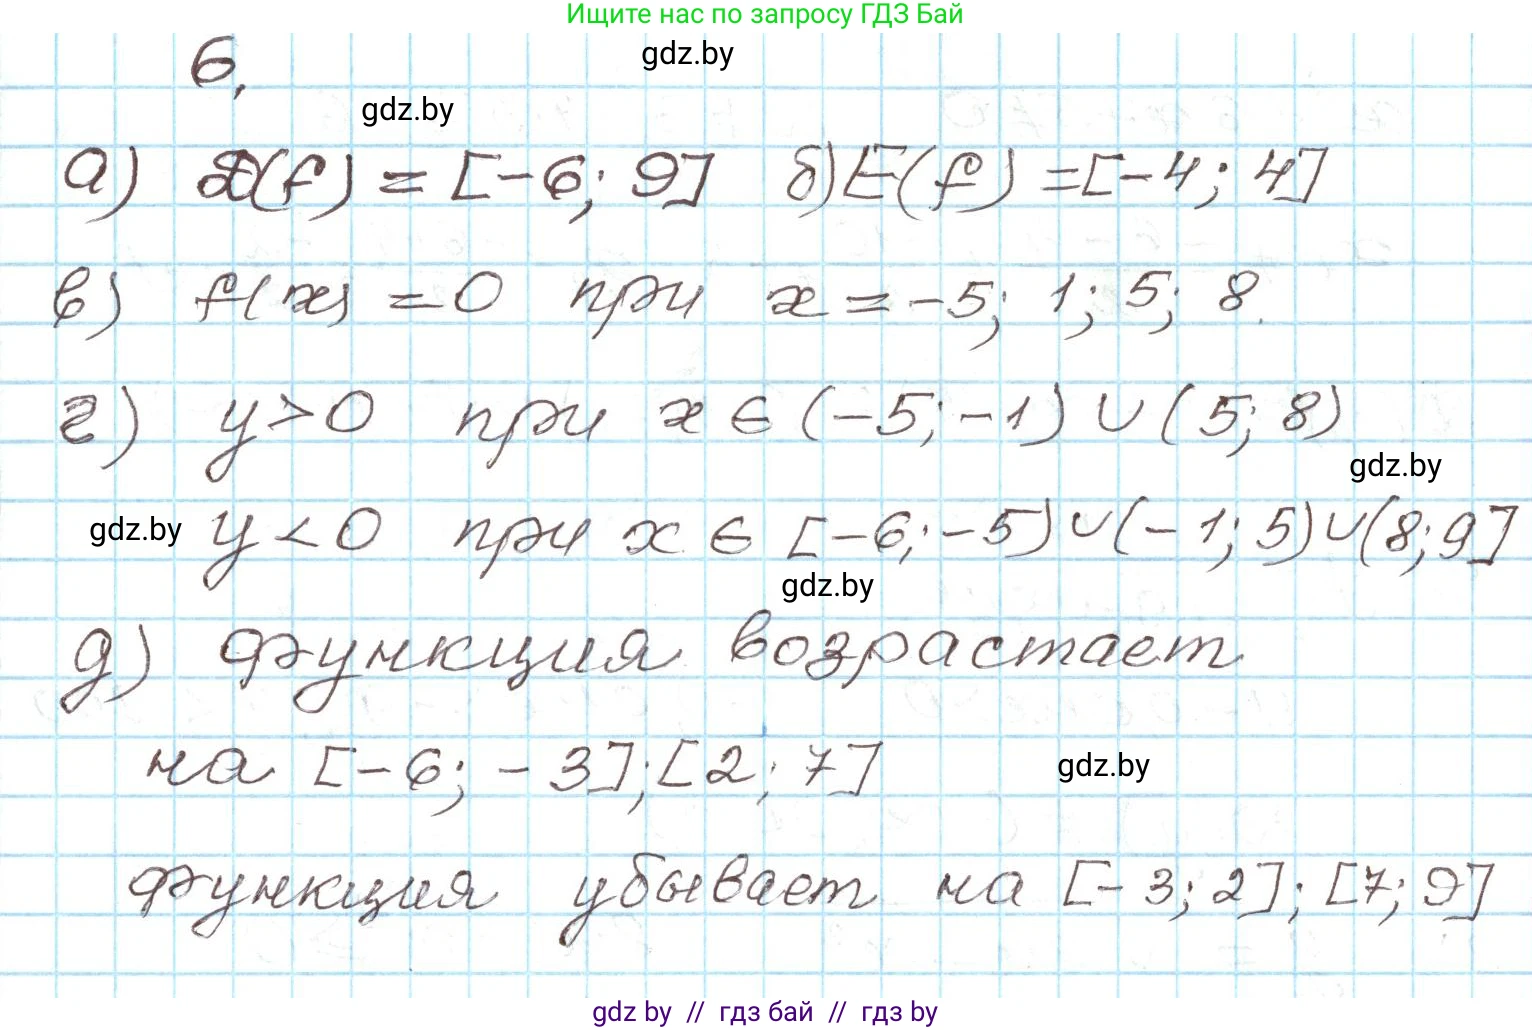 Ищите нас по запросу ГДЗ Бай
6.
gdz.by
gdz.by
а) D(f) = [-6; 9] б) E(f) = [-4; 4]
в) f(x) = 0 при x = -5; 1; 5; 8.
г) y > 0 при x ∈ (-5; -1) ∪ (5; 8)
gdz.by
gdz.by y < 0 при x ∈ [-6; -5) ∪ (-1; 5) ∪ (8; 9]
gdz.by
д) функция возрастает
на [-6; -3]; [2; 7]
gdz.by
функция убывает на [-3; 2]; [7; 9]
gdz.by // гдз бай // гдз by